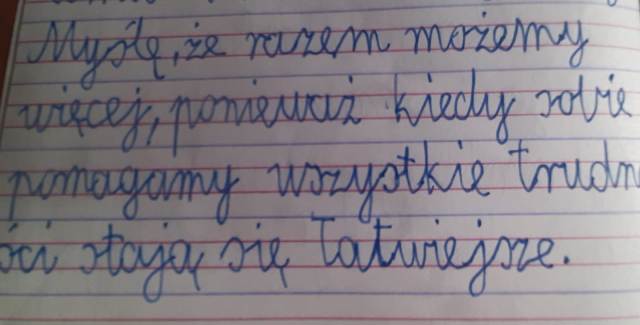 Myślę, że razem możemy
więcej, ponieważ kiedy sobie
pomagamy wszystkie trudn
ości stają się łatwiejsze.